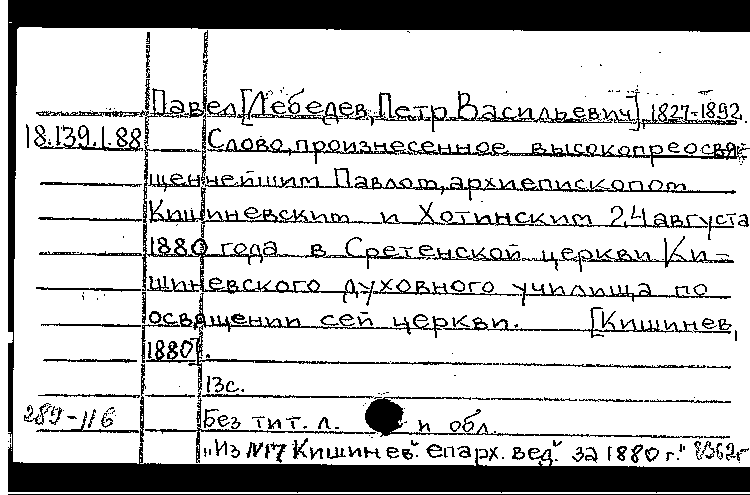 Павел [Лебедев, Петр Васильевич], 1827-1892.
18.139.1.88 Слово, произнесенное высокопреосвя-
щеннейшим Павлом, архиепископом
Кишиневским и Хотинским 24 августа
1880 года в Сретенской церкви Ки-
шиневского духовного училища по
освящении сей церкви. [Кишинев,
1880].
13с.
289-116 Без тит. л. и обл.
"Из №17 Кишинев. епарх. вед." за 1880 г."